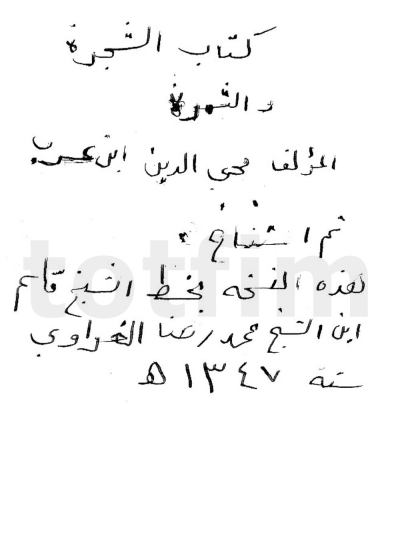 كتاب الشجرة
والثمرة
المؤلف محي الدين ابن عربي
تم استنساخ :
هذه النسخه بخط الشيخ قاسم
ابن الشيخ محمد رضا الغراوي
سنة ١٣٤٧ ه
totfim